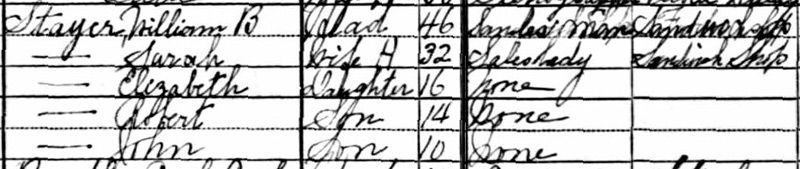 Stayer William B Head 46 Salesman Sandwich Shop
— Sarah Wife H 32 Saleslady Sandwich Shop
— Elizabeth Daughter 16 None
— Robert Son 14 None
— John Son 10 None